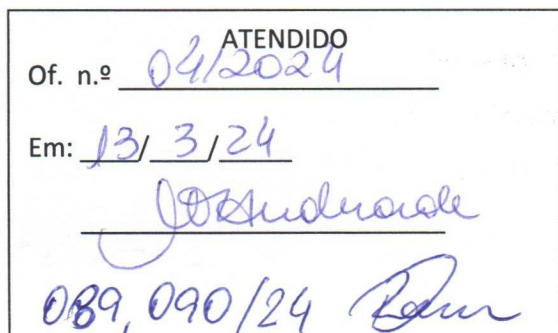 ATENDIDO
Of. n.º 04/2024
Em: 13/ 3 /24
089, 090/24